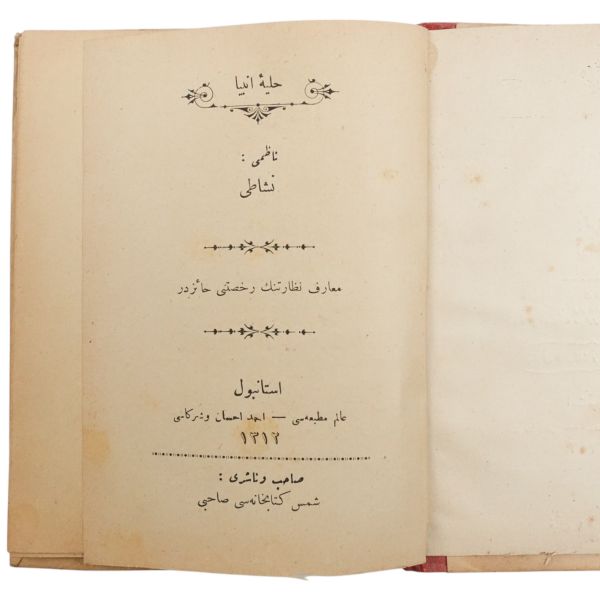 حلیۀ انبیا
ناظمی :
نشاطی
معارف نظارتنك رخصتنی حائزدر
استانبول
عالم مطبعه‌سی — احمد احسان وشركاسی
١٣١٢
صاحب وناشری :
شمس كتابخانه‌سی صاحبی